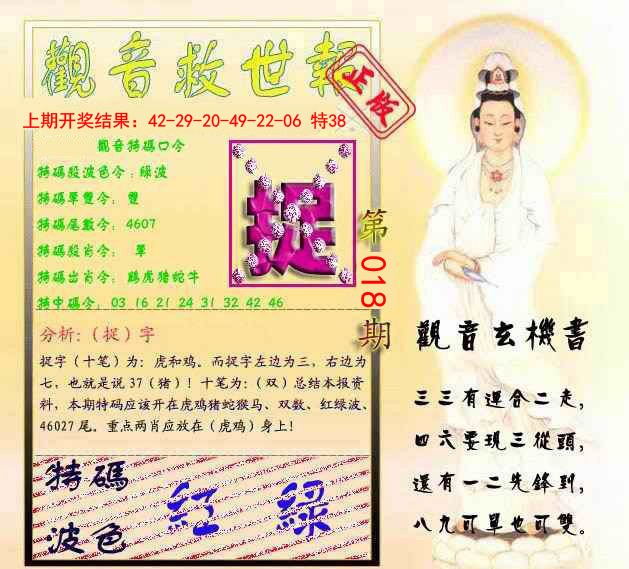 觀音救世報
正版
上期开奖结果：42-29-20-49-22-06 特38
觀音特碼口令
特碼殺波色令：綠波
特碼單雙令： 雙
特碼尾數令： 4607
特碼殺肖令： 單
特碼出肖令： 鷄虎猪蛇牛
特中碼令：03 16 21 24 31 32 42 46
捉
第
018
期
分析:（捉）字
捉字（十笔）为：虎和鸡。而捉字左边为三，右边为
七，也就是说 37（猪）！十笔为：（双）总结本报资
料，本期特码应该开在虎鸡猪蛇猴马、双数、红绿波、
46027 尾。重点两肖应放在（虎鸡）身上！
特碼
波色
紅 綠
觀音玄機書
三三有運合二走，
四六要現三從頭，
還有一二先鋒到，
八九可單也可雙。